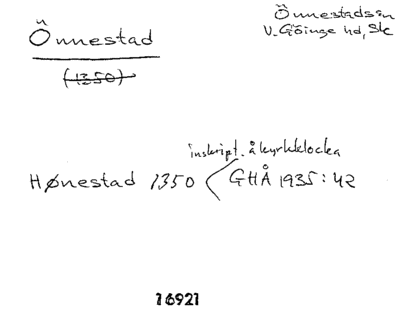 Önnestad
(1350)
Önnestads sn
V. Göinge hd, Sk
inskript. å kyrkklocka
Hønestad 1350 < GHÅ 1935:42
16921